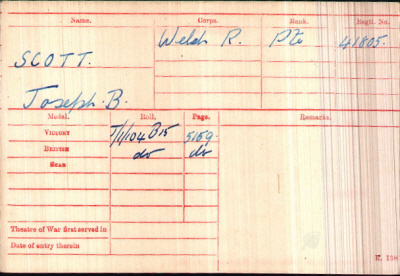 Name. Corps. Rank. Regtl. No.
SCOTT. Welsh R. Pte 41805.
Joseph. B.
Medal. Roll. Page. Remarks.
VICTORY J/1/104 B15 5159.
BRITISH do do
STAR
Theatre of War first served in
Date of entry therein
K. 138